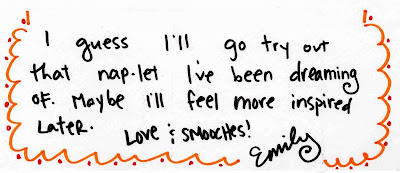 I guess I'll go try out
that nap-let I've been dreaming
of. Maybe i'll feel more inspired
Later. Love & smooches!
Emily